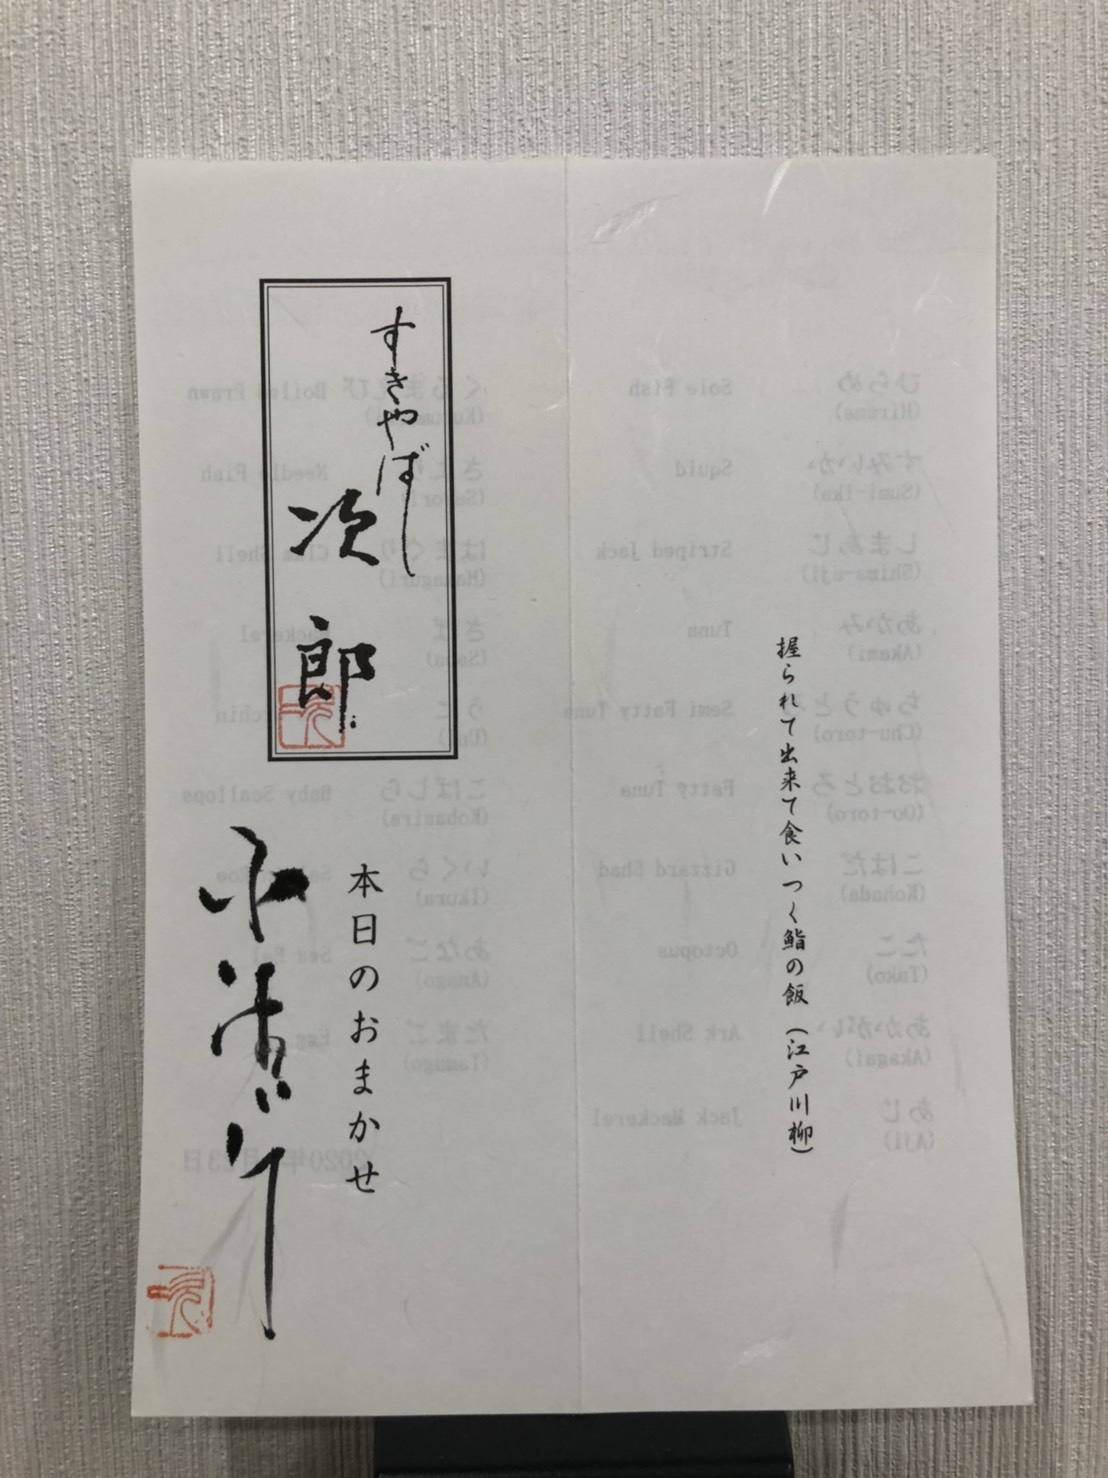 握られて出来て食いつく鮨の飯（江戸川柳）
すきやばし
次郎
本日のおまかせ
ひらめ Sole Fish
(Hirame)
すみいか Squid
(Sumi-ika)
しまあじ Striped Jack
(Shima-aji)
あかみ Tuna
(Akami)
ちゅうとろ Semi Fatty Tuna
(Chu-toro)
おおとろ Fatty Tuna
(Oo-toro)
こはだ Gizzard Shad
(Kohada)
たこ Octopus
(Tako)
あかがい Ark Shell
(Akagai)
あじ Jack Mackerel
(Aji)
くるまえび Boiled Prawn
さより Needle Fish
はまぐり Clam Shell
(Hamaguri)
さば Mackerel
(Saba)
こばしら Baby Scallops
(Kobasira)
いくら
(Ikura)
あなご Sea Eel
(Anago)
たまご Egg
(Tamago)